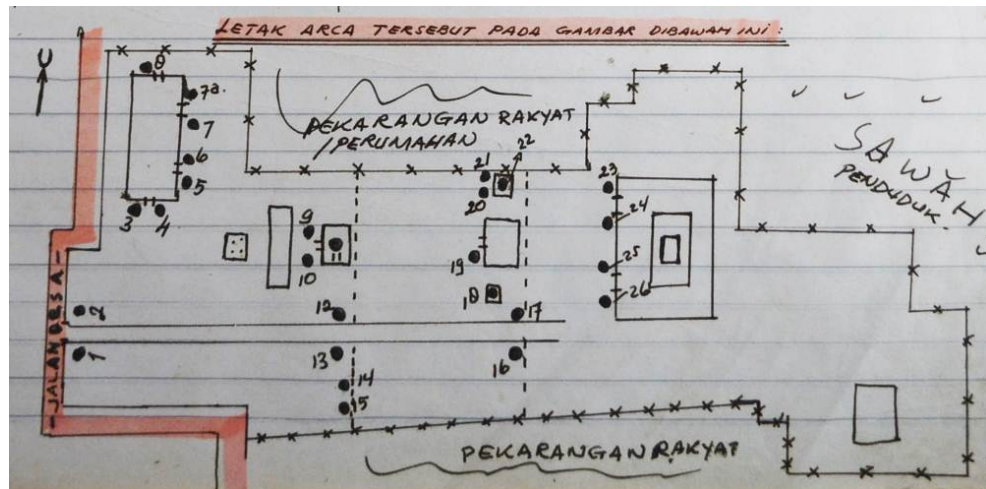 LETAK ARCA TERSEBUT PADA GAMBAR DIBAWAH INI:
U
8
7a.
7
6
5
3 4
PEKARANGAN RAKYAT
/PERUMAHAN
21 22
20
23
24
25
26
SAWAH
PENDUDUK
9
10
19
18
12
17
2
1
13
16
14
15
-JALAN BESA-
PEKARANGAN RAKYAT